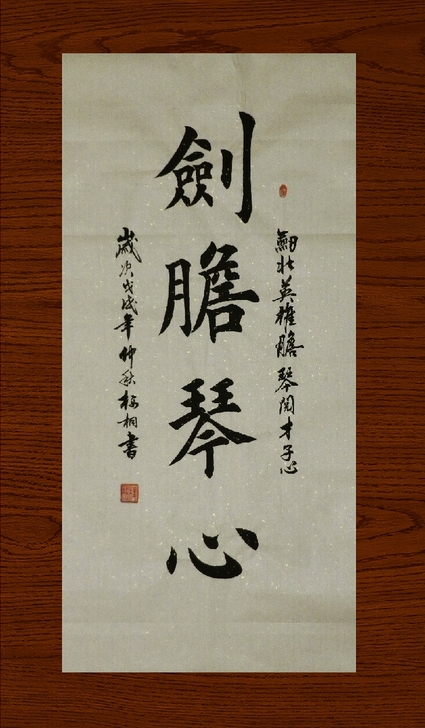 劍壮英雄膽琴開才子心
劍膽琴心
歲次戊戌年仲秋桐書